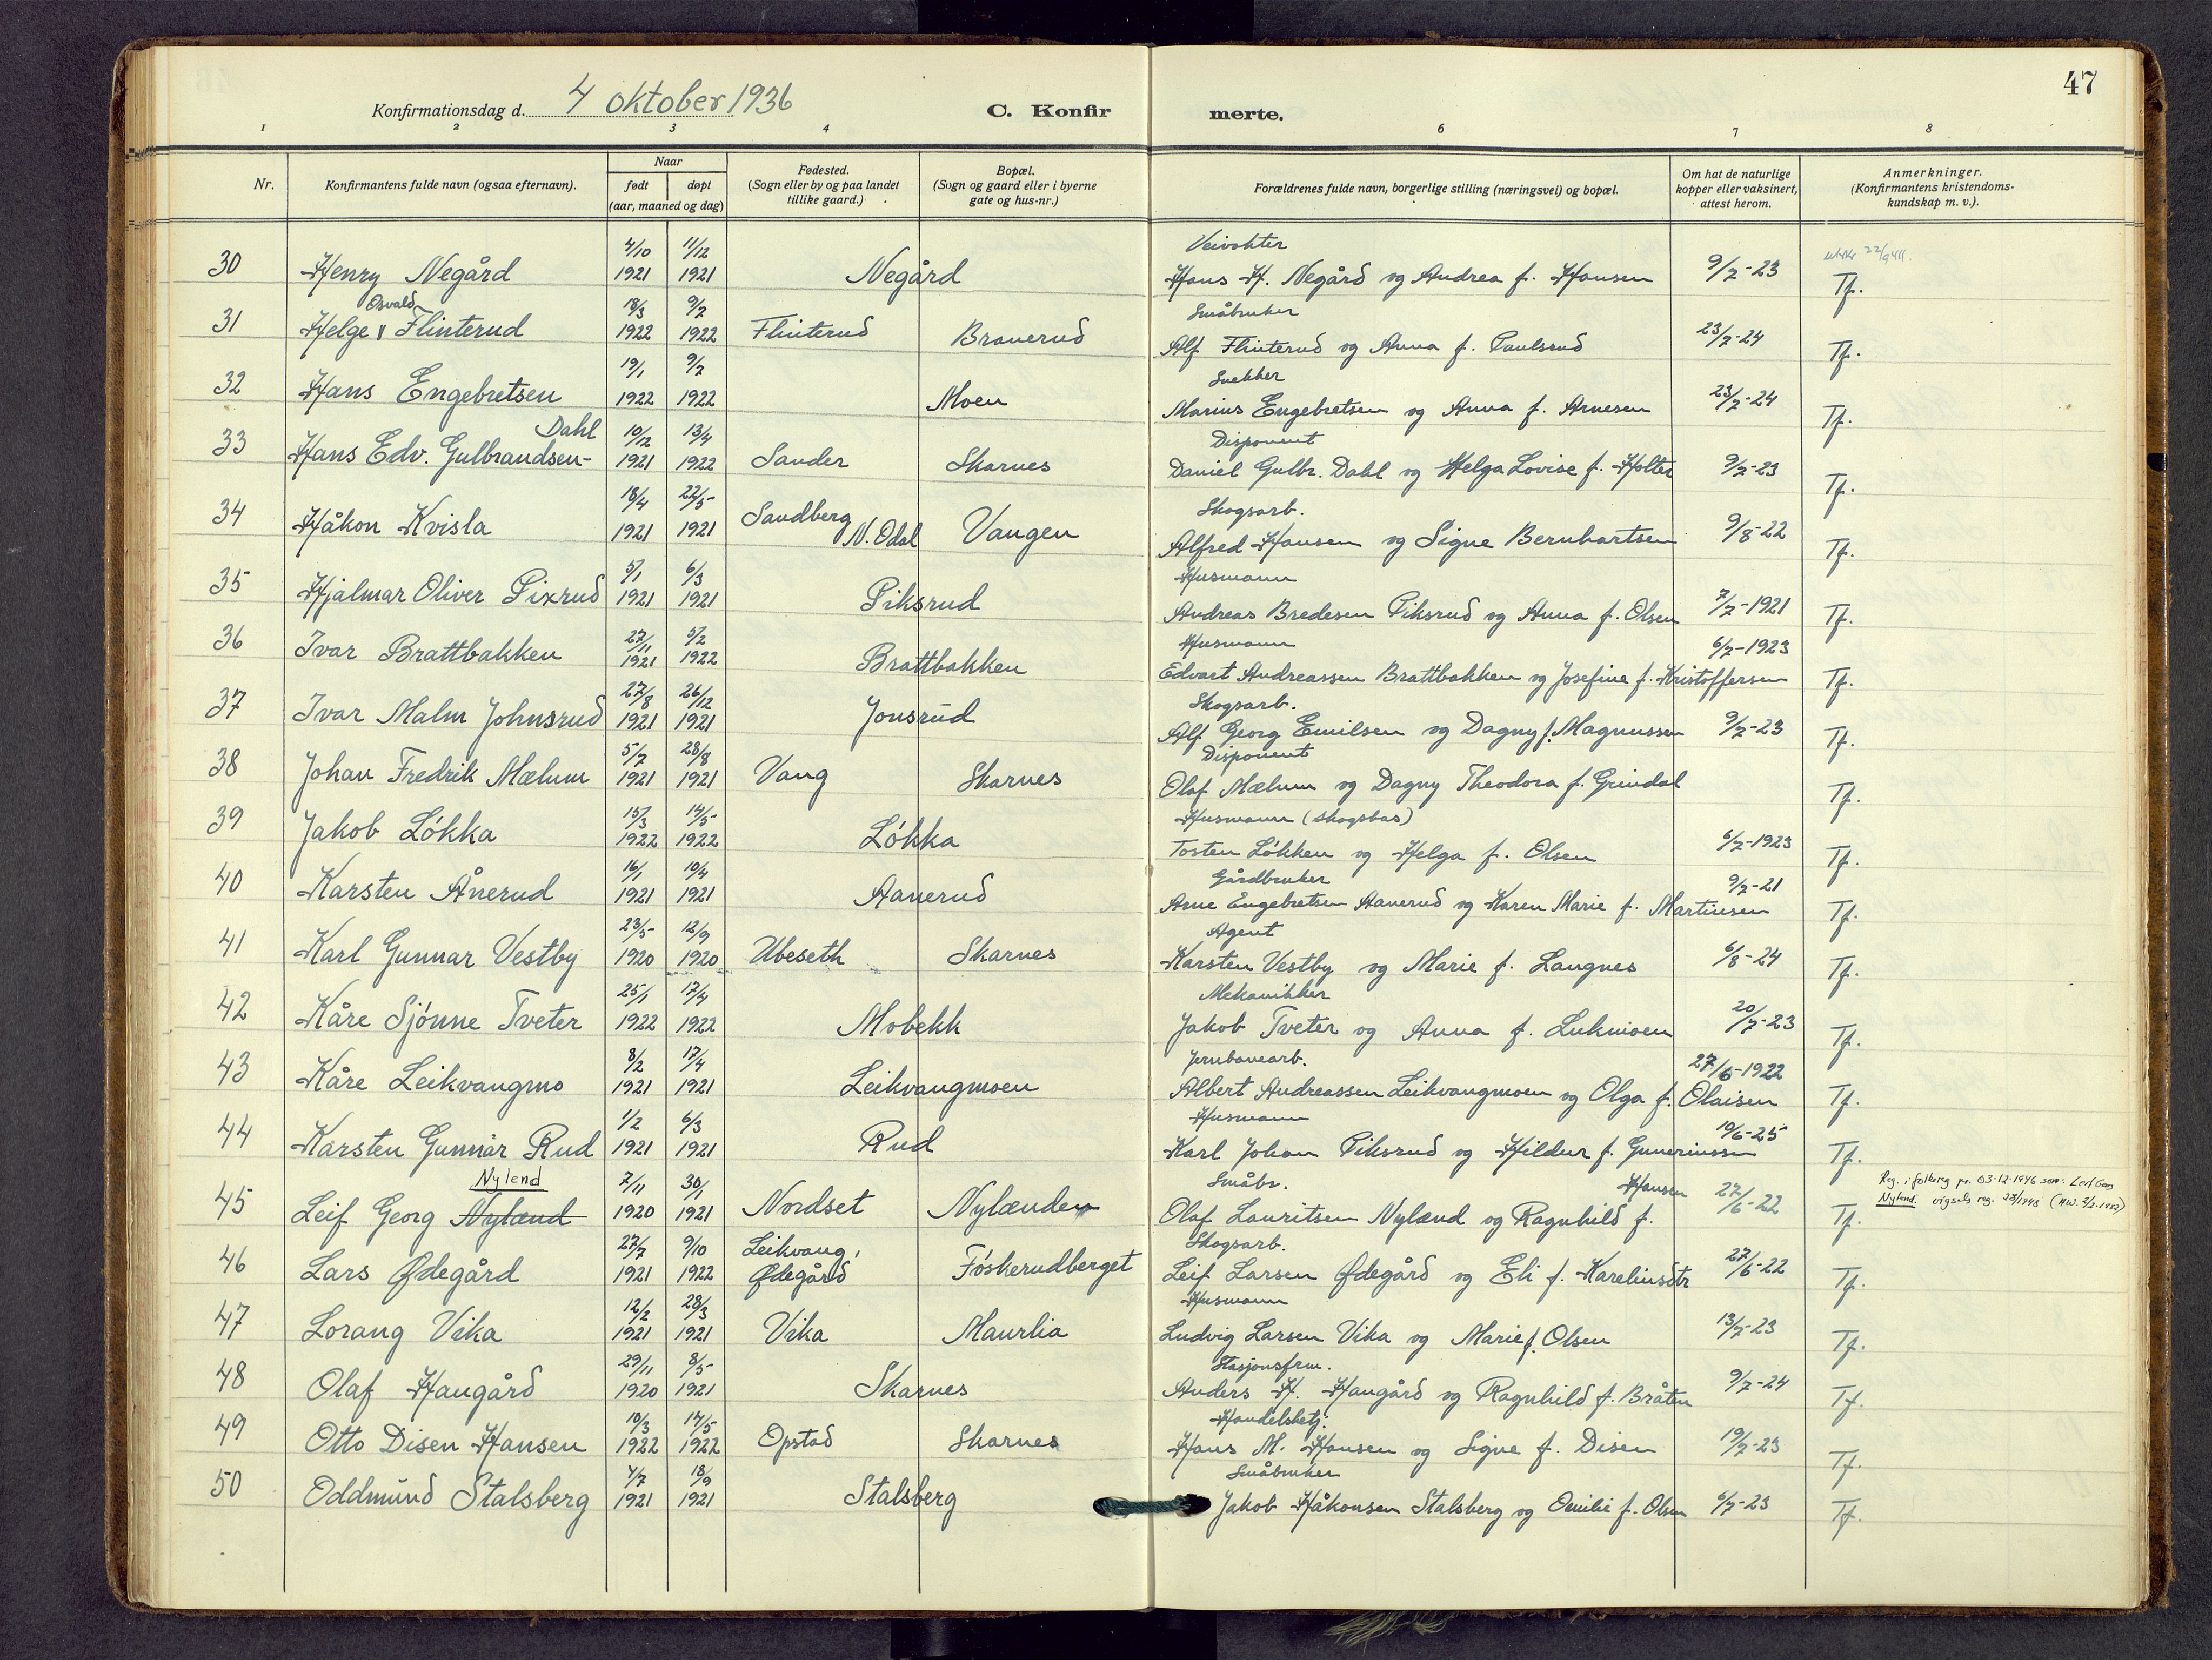 47
Konfirmationsdag d. 4 oktober 1936
C. Konfir
merte.
1 2 3 4 6 7 8
Nr.
Konfirmantens fulde navn (ogsaa efternavn).
Naar
født
døpt
(aar, maaned og dag)
Fødested.
(Sogn eller by og paa landet
tillike gaard.)
Bopæl.
(Sogn og gaard eller i byerne
gate og hus-nr.)
Forældrenes fulde navn, borgerlige stilling (næringsvei) og bopæl.
Om hat de naturlige
kopper eller vaksinert,
attest herom.
Anmerkninger.
(Konfirmantens kristendoms-
kundskap m. v.).
4/10 11/12 Veivokter
30 Henry Negård 1921 1921 Negård Hans H. Negård og Andrea f. Hansen 9/7-23 Tf.
Osvald 18/3 9/7 Småbruker
31 Helge Flinterud 1922 1922 Flinterud Branerud Alf Flinterud og Anna f. Paulsrud 23/7-24 Tf.
19/1 9/7 Snekker
32 Hans Engebretsen 1922 1922 Moen Marius Engebretsen og Anna f. Arnesen 23/7-24 Tf.
Dahl 10/12 13/4 Disponent
33 Hans Edv. Gulbrandsen- 1921 1922 Sander Skarnes Daniel Gulbr. Dahl og Helga Lovise f. Holter 9/7-23 Tf.
18/4 22/5 Sandberg Skogsarb.
34 Håkon Kvisla 1921 1921 N. Odal Vangen Alfred Hansen og Signe Bernhartsen 9/8-22 Tf.
5/1 6/3 Husmann
35 Hjalmar Oliver Pixrud 1921 1921 Piksrud Andreas Bredesen Piksrud og Anna f. Olsen 7/7-1921 Tf.
27/11 5/2 Husmann 6/7-1923
36 Ivar Brattbakken 1921 1922 Brattbakken Edvart Andreassen Brattbakken og Josefine f. Kristoffersen Tf.
27/8 26/12 Skogsarb.
37 Ivar Malm Johnsrud 1921 1921 Jonsrud Alf Georg Emilsen og Dagny f. Magnussen 9/7-23 Tf.
5/7 28/8 Disponent
38 Johan Fredrik Mælum 1921 1921 Vang Skarnes Olaf Mælum og Dagny Theodora f. Grindal Tf.
15/3 14/5 Husmann (skogsbas)
39 Jakob Løkka 1922 1922 Løkka Tosten Løkken og Helga f. Olsen 6/7-1923 Tf.
16/1 10/4 Gårdbruker 9/7-21
40 Karsten Ånerud 1921 1921 Aanerud Arne Engebretsen Aanerud og Karen Marie f. Martinsen Tf.
23/5 12/9 Agent
41 Karl Gunnar Vestby 1920 1920 Ubeseth Skarnes Karsten Vestby og Marie f. Langnes 6/8-24 Tf.
25/1 17/4 Mekanikker
42 Kåre Sjønne Tveter 1922 1922 Mobekk Jakob Tveter og Anna f. Lukmoen 20/7-23 Tf.
8/2 17/4 Jernbanearb. 27/6-1922
43 Kåre Leikvangmo 1921 1921 Leikvangmoen Albert Andreassen Leikvangmoen og Olga f. Olaisen Tf.
1/2 6/3 Husmann 19/6-25
44 Karsten Gunnar Rud 1921 1921 Rud Karl Johan Piksrud og Hildur f. Gunerinssen Tf.
Nylend 7/11 30/1 Småbr. Hansen Reg. i folkereg pr. 03-12-1946 som: Leif Georg
45 Leif Georg Nylænd 1920 1921 Nordset Nylænden Olaf Lauritsen Nylænd og Ragnhild f. 27/6-22 Tf. Nylend.
27/7 9/10 Leikvang, Skogsarb.
46 Lars Ødegård 1921 1922 Ødegård Føskerudberget Leif Larsen Ødegård og Eli f. Karelinsdtr 27/6-22 Tf.
12/2 28/3 Husmann
47 Lorang Vika 1921 1921 Vika Maurlia Ludvig Larsen Vika og Marie f. Olsen 13/7-23 Tf.
29/11 8/5 Stasjonsfrm.
48 Olaf Haugård 1920 1921 Skarnes Anders H. Haugård og Ragnhild f. Bråten 9/7-24 Tf.
10/3 14/5 Handelsbetj.
49 Otto Disen Hansen 1922 1922 Opstad Skarnes Hans M. Hansen og Signe f. Disen 19/7-23 Tf.
4/7 18/9 Småbruker
50 Oddmund Stalsberg 1921 1921 Stalsberg Jakob Håkonsen Stalsberg og Emilie f. Olsen 6/7-23 Tf.